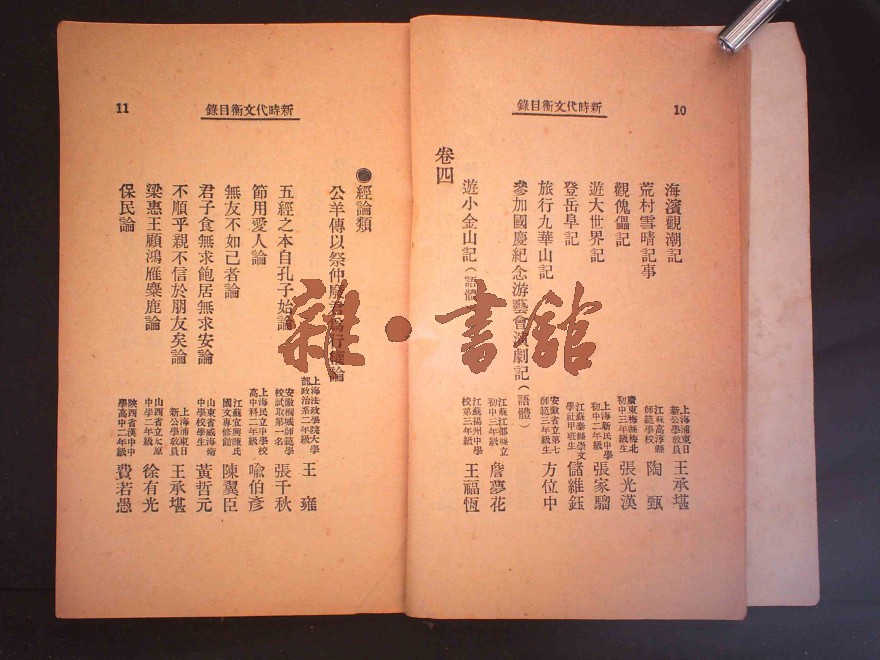 新時代文衡目錄
10
海濱觀潮記 上海浦東日新公學教員 王承堪
荒村雪晴記事 江蘇高淳縣師範學校 陶甄
觀傀儡記 廣東梅縣梅北初中三年級生 張光漢
遊大世界記 上海新民中學初中二年級 張家騮
登岳阜記 江蘇泰縣崇文學社甲班生 儲維鈺
旅行九華山記 安徽省立第七師範三年級生 方位中
參加國慶紀念游藝會演劇記（語體） 江蘇江都縣立初中三年級 詹夢花
遊小金山記（語體） 江蘇揚州中學校第三年級 王福恆
卷四
新時代文衡目錄
11
●經論類
公羊傳以祭仲廢君爲行權論 上海法政學院大學部政治系二年級 王雍
五經之本自孔子始論 安徽桐城師範學校試取第一名 張千秋
節用愛人論 上海民立中學校高中科二年級 喩伯彥
無友不如己者論 江蘇宜興陳氏國文專修館 陳翼臣
君子食無求飽居無求安論 山東省威海衛中學校學生 黃哲元
不順乎親不信於朋友矣論 上海浦東日新公學教員 王承堪
梁惠王顧鴻雁麋鹿論 山西省立太原中學二年級 徐有光
保民論 陝西省漢中中學高中二年級 費若愚
雜·書館